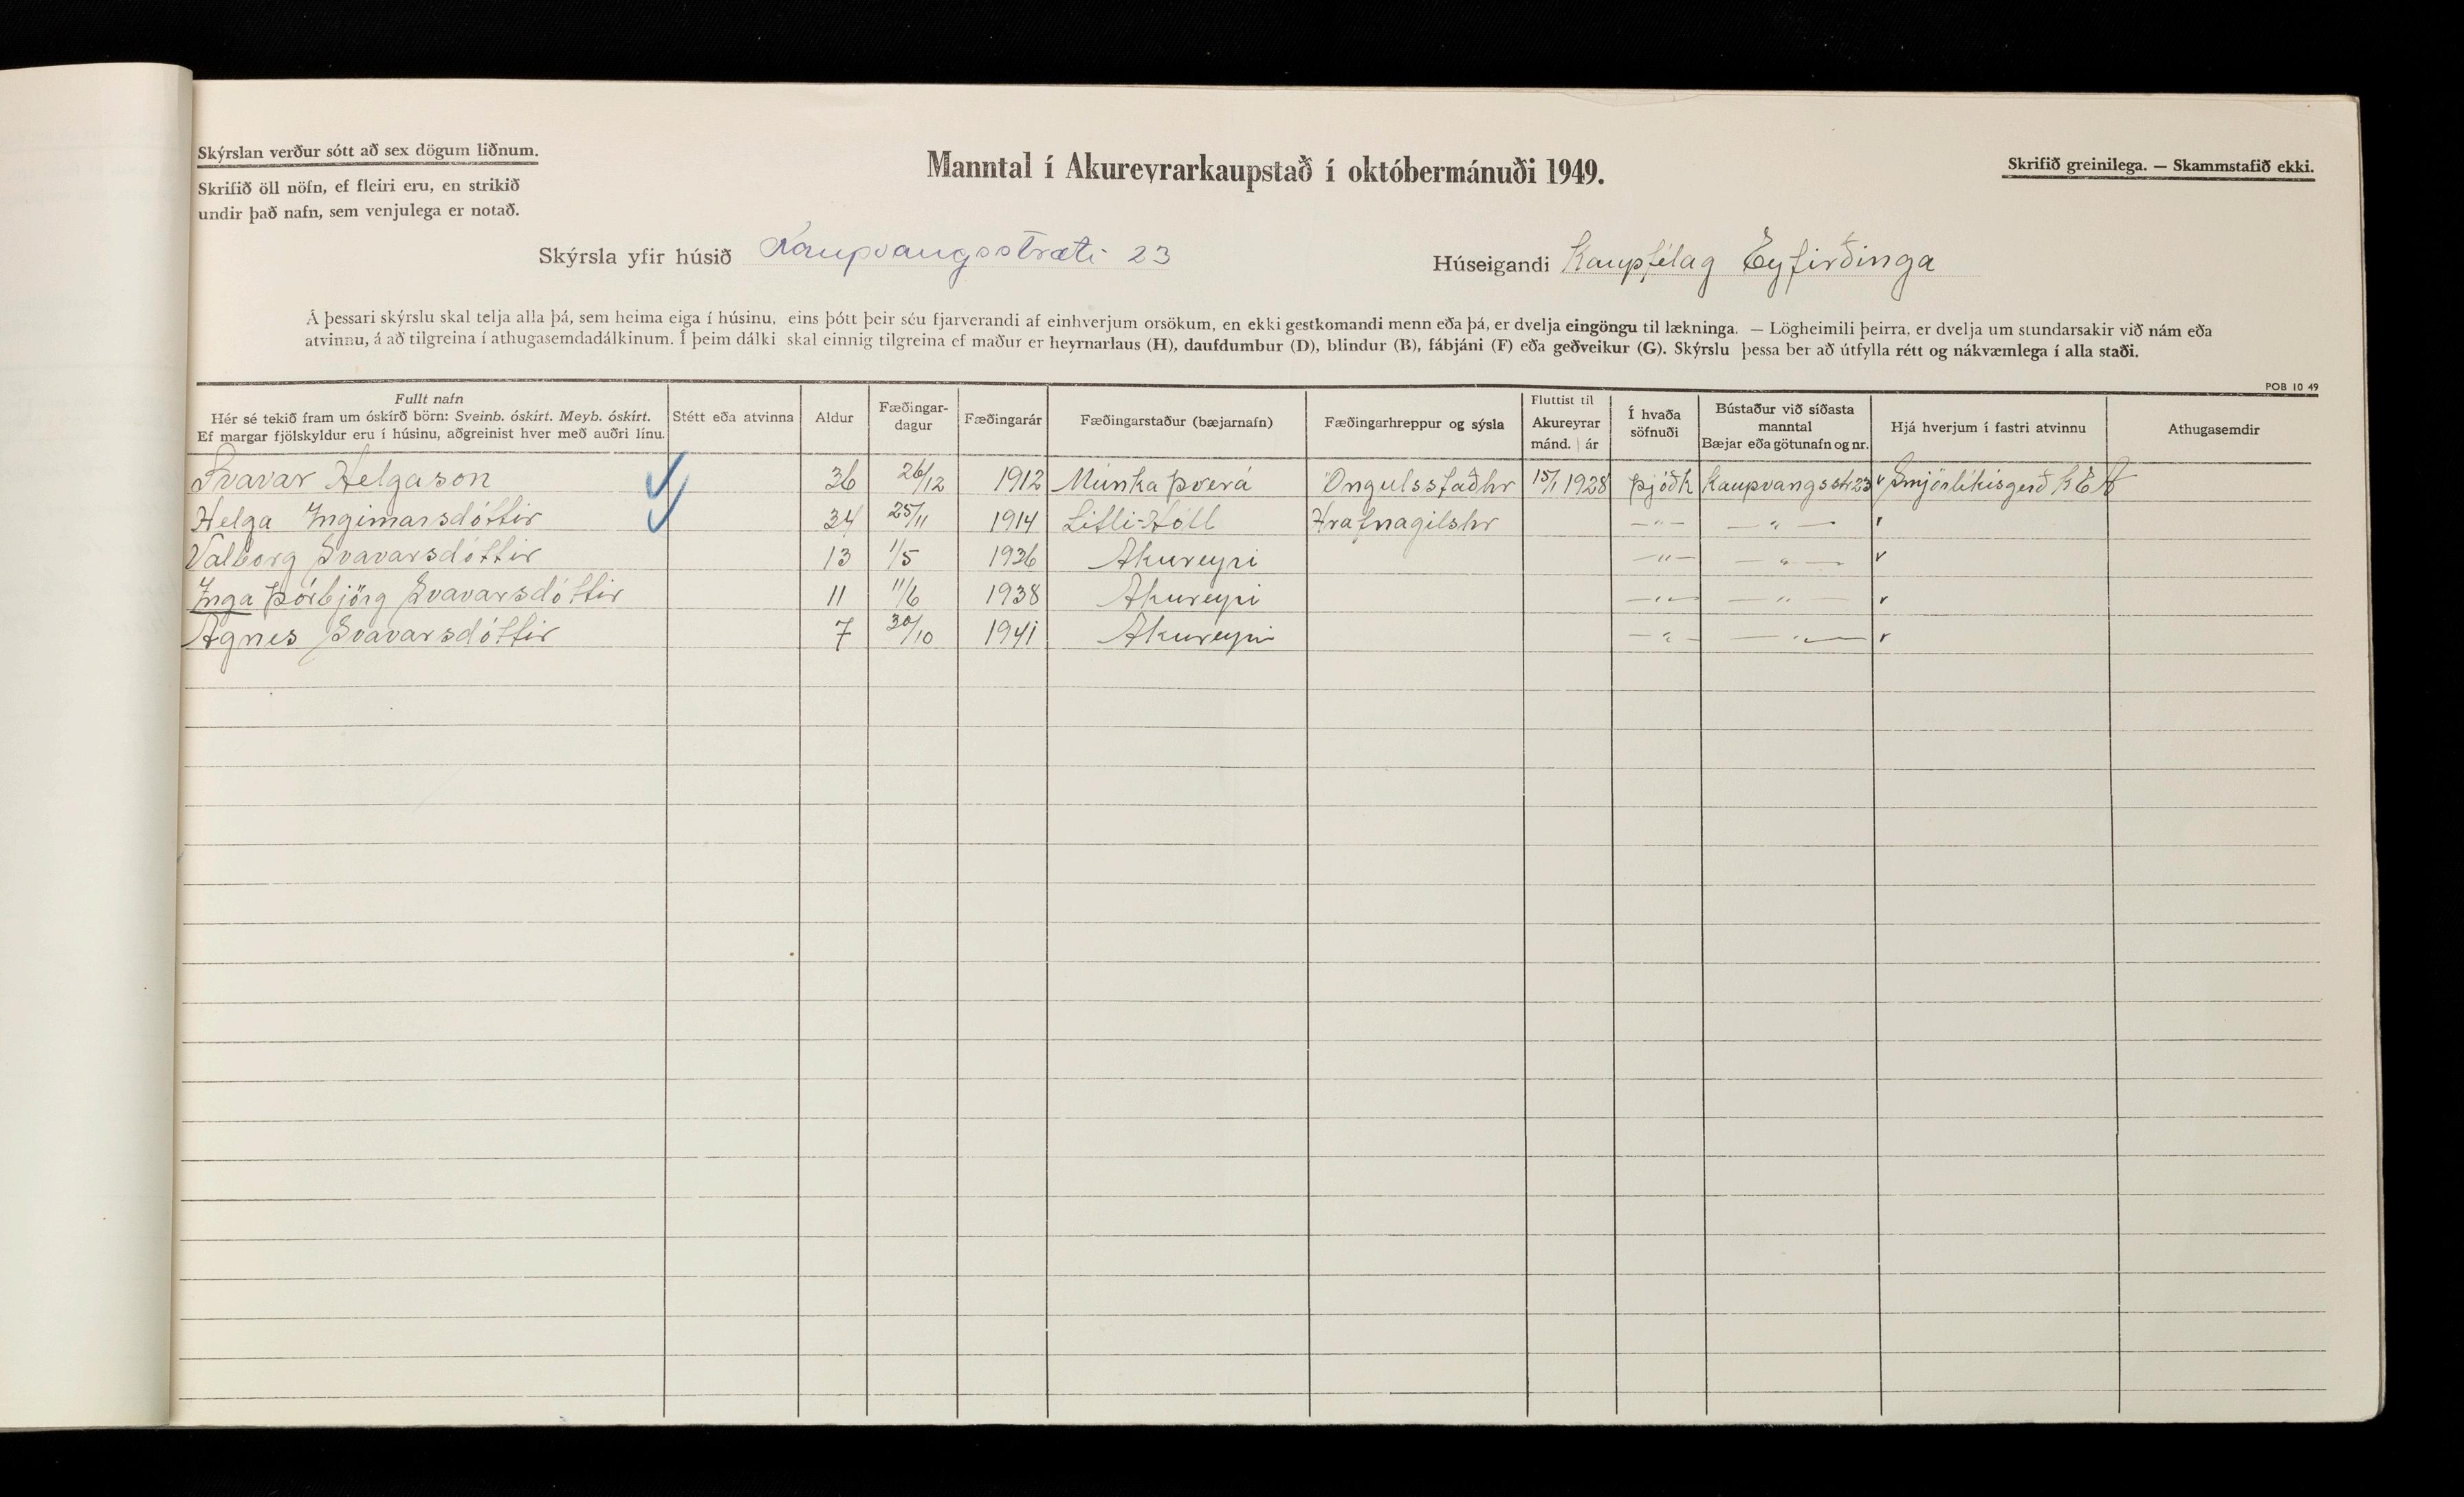 Skýrslan verður sótt að sex dögum liðnum.
Skrifið öll nöfn, ef fleiri eru, en strikið
undir það nafn, sem venjulega er notað.
Manntal í Akureyrarkaupstað í októbermánuði 1949.
Skrifið greinilega. — Skammstafið ekki.
Skýrsla yfir húsið Kaupvangsstræti 23
Húseigandi Kaupfélag Eyfirðinga
Á þessari skýrslu skal telja alla þá, sem heima eiga í húsinu, eins þótt þeir séu fjarverandi af einhverjum orsökum, en ekki gestkomandi menn eða þá, er dvelja eingöngu til lækninga. — Lögheimili þeirra, er dvelja um stundarsakir við nám eða
atvinnu, á að tilgreina í athugasemdadálkinum. Í þeim dálki skal einnig tilgreina ef maður er heyrnarlaus (H), daufdumbur (D), blindur (B), fábjáni (F) eða geðveikur (G). Skýrslu þessa ber að útfylla rétt og nákvæmlega í alla staði.
POB 10 49
Fullt nafn
Hér sé tekið fram um óskírð börn: Sveinb. óskírt. Meyb. óskírt.
Ef margar fjölskyldur eru í húsinu, aðgreinist hver með auðri línu.
Stétt eða atvinna
Aldur
Fæðingar-
dagur
Fæðingarár
Fæðingarstaður (bæjarnafn)
Fæðingarhreppur og sýsla
Fluttist til
Akureyrar
mánd. ár
Í hvaða
söfnuði
Bústaður við síðasta
manntal
Bæjar eða götunafn og nr.
Hjá hverjum í fastri atvinnu
Athugasemdir
Svavar Helgason 36 26/12 1912 Munkaþverá Öngulsstaðhr 15/1 1928 þjóðk Kaupvangsstr 23 Smjörlíkisgerð KEA
Helga Ingimarsdóttir 34 25/11 1914 Litli-Hóll Hrafnagilshr —"— —"—
Valborg Svavarsdóttir 13 1/5 1936 Akureyri —"— —"—
Inga Þórbjörg Svavarsdóttir 11 11/6 1938 Akureyri —"— —"—
Agnes Svavarsdóttir 7 30/10 1941 Akureyri —"— —"—